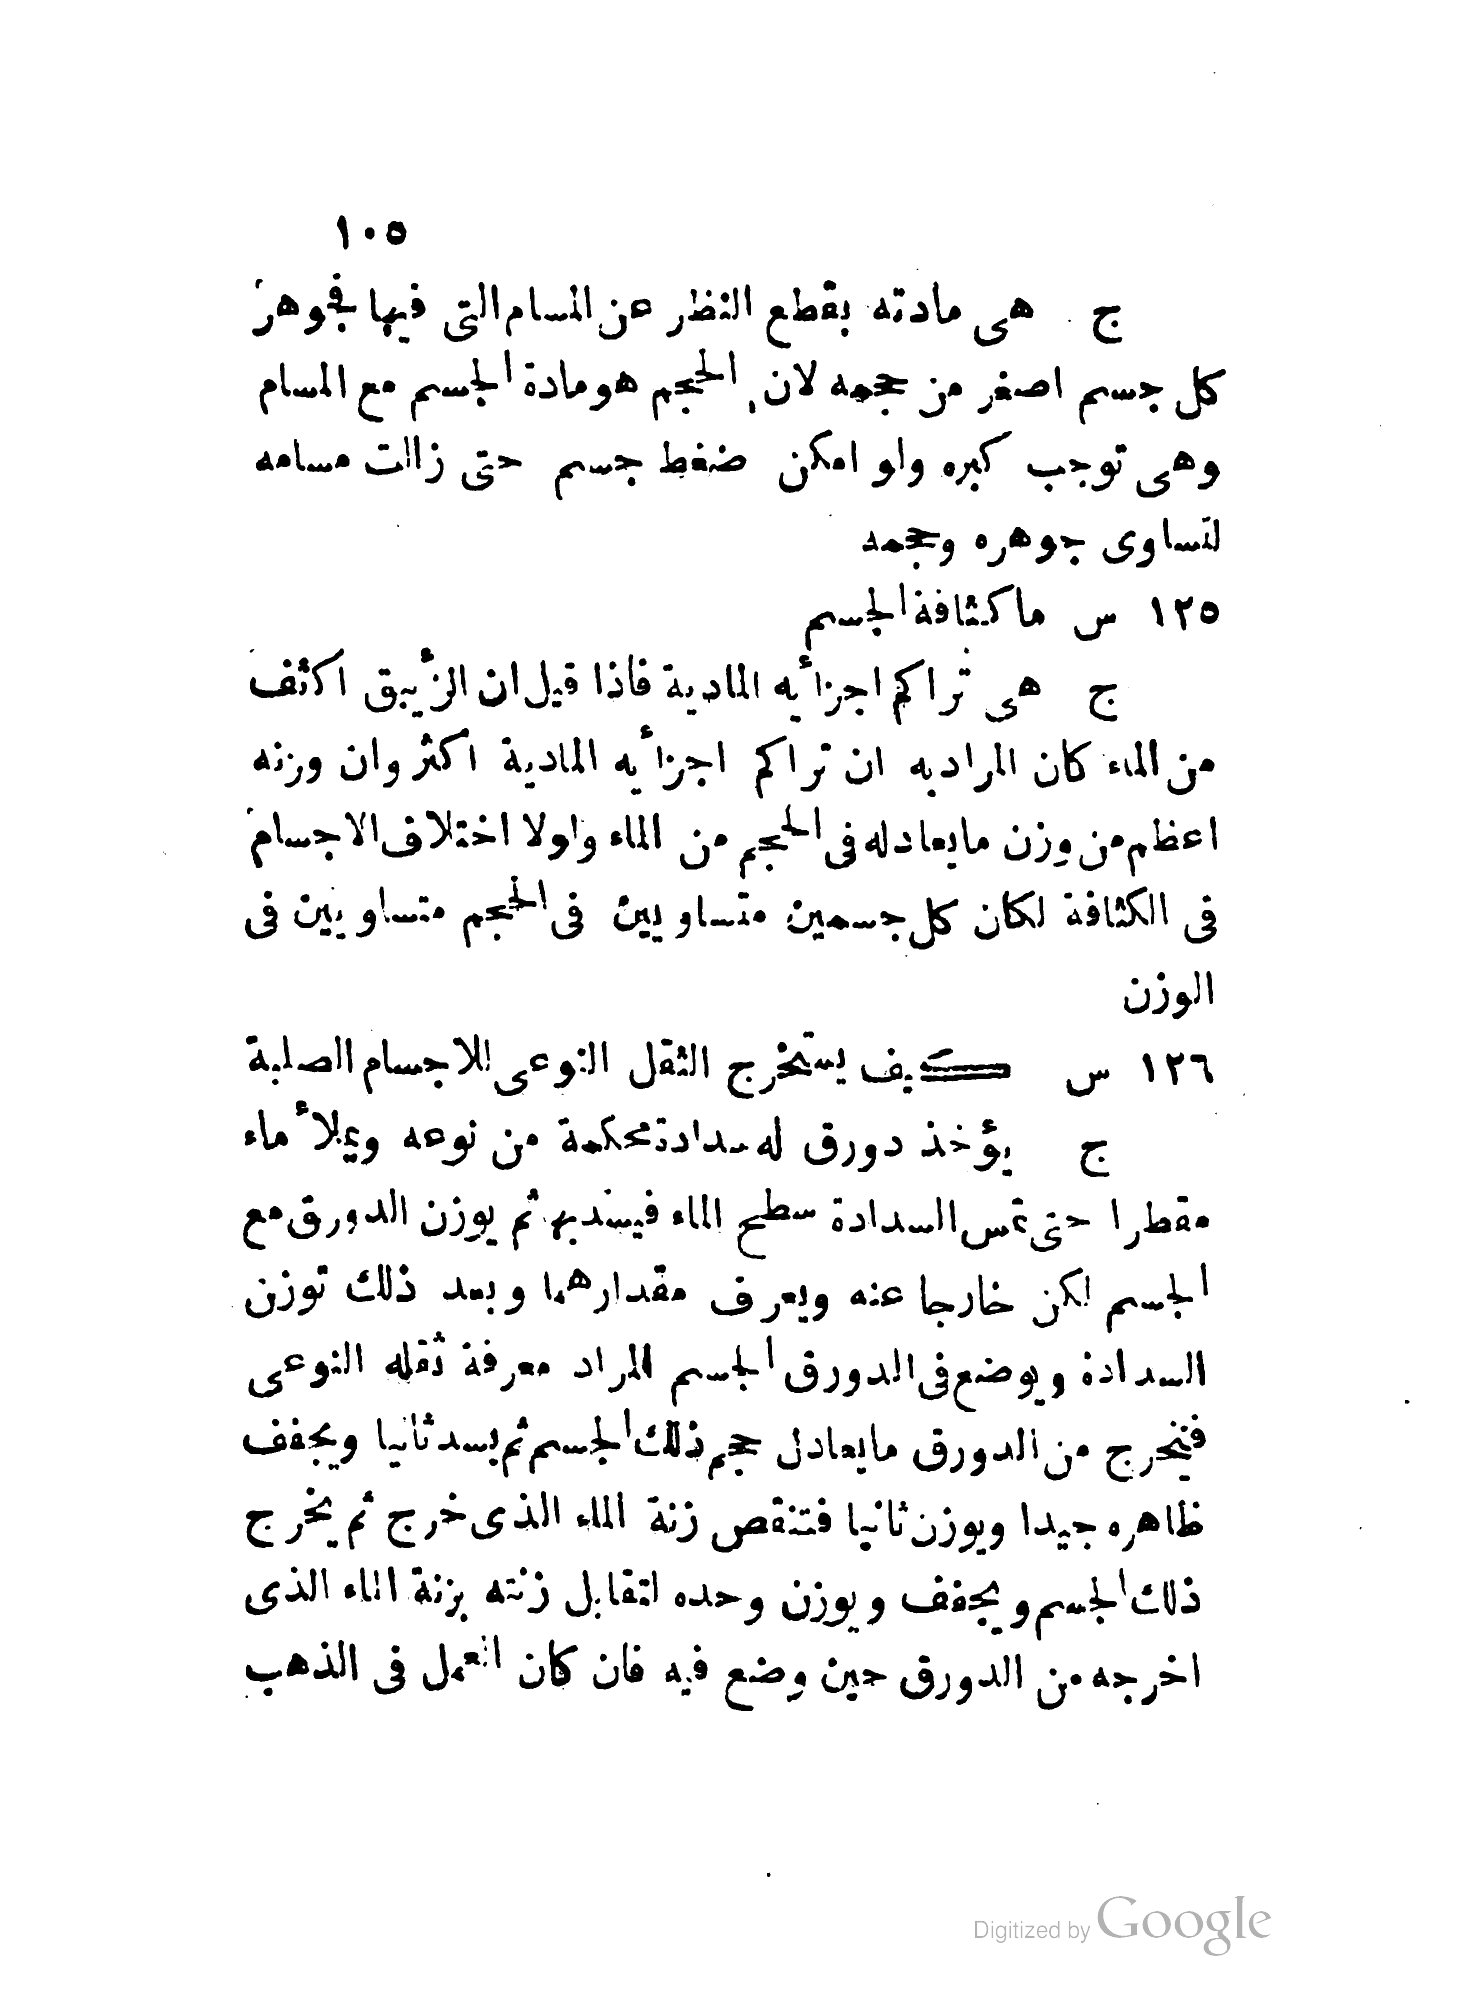 ١٠٥
ج هى مادته بقطع النظر عن المسام التى فيها فجوهر
كل جسم اصغر من حجمه لان الحجم هو مادة الجسم مع المسام
وهى توجب كبره ولو امكن ضغط جسم حتى زالت مسامه
لتساوى جوهره وحجمه
١٢٥ س ما كثافة الجسم
ج هى تراكم اجزأيه المادية فاذا قيل ان الزأيبق اكثف
من الماء كان المراد به ان تراكم اجزأيه المادية اكثر وان وزنه
اعظم من وزن ما يعادله فى الحجم من الماء ولولا اختلاف الاجسام
فى الكثافة لكان كل جسمين متساويين فى الحجم متساويين فى
الوزن
١٢٦ س كيف يستخرج الثقل النوعى للاجسام الصلبة
ج يؤخذ دورق له سدادة محكمة من نوعه ويملأ ماء
مقطرا حتى تمس السدادة سطح الماء فيسد بها ثم يوزن الدورق مع
الجسم لكن خارجا عنه ويعرف مقدارهما وبعد ذلك توزن
السدادة ويوضع فى الدورق الجسم المراد معرفة ثقله النوعى
فيخرج من الدورق ما يعادل حجم ذلك الجسم ثم يسد ثانيا ويجفف
ظاهره جيدا ويوزن ثانيا فتنقص زنة الماء الذى خرج ثم يخرج
ذلك الجسم ويجفف ويوزن وحده لتقابل زنته بزنة الماء الذى
اخرجه من الدورق حين وضع فيه فان كان العمل فى الذهب
Digitized by Google